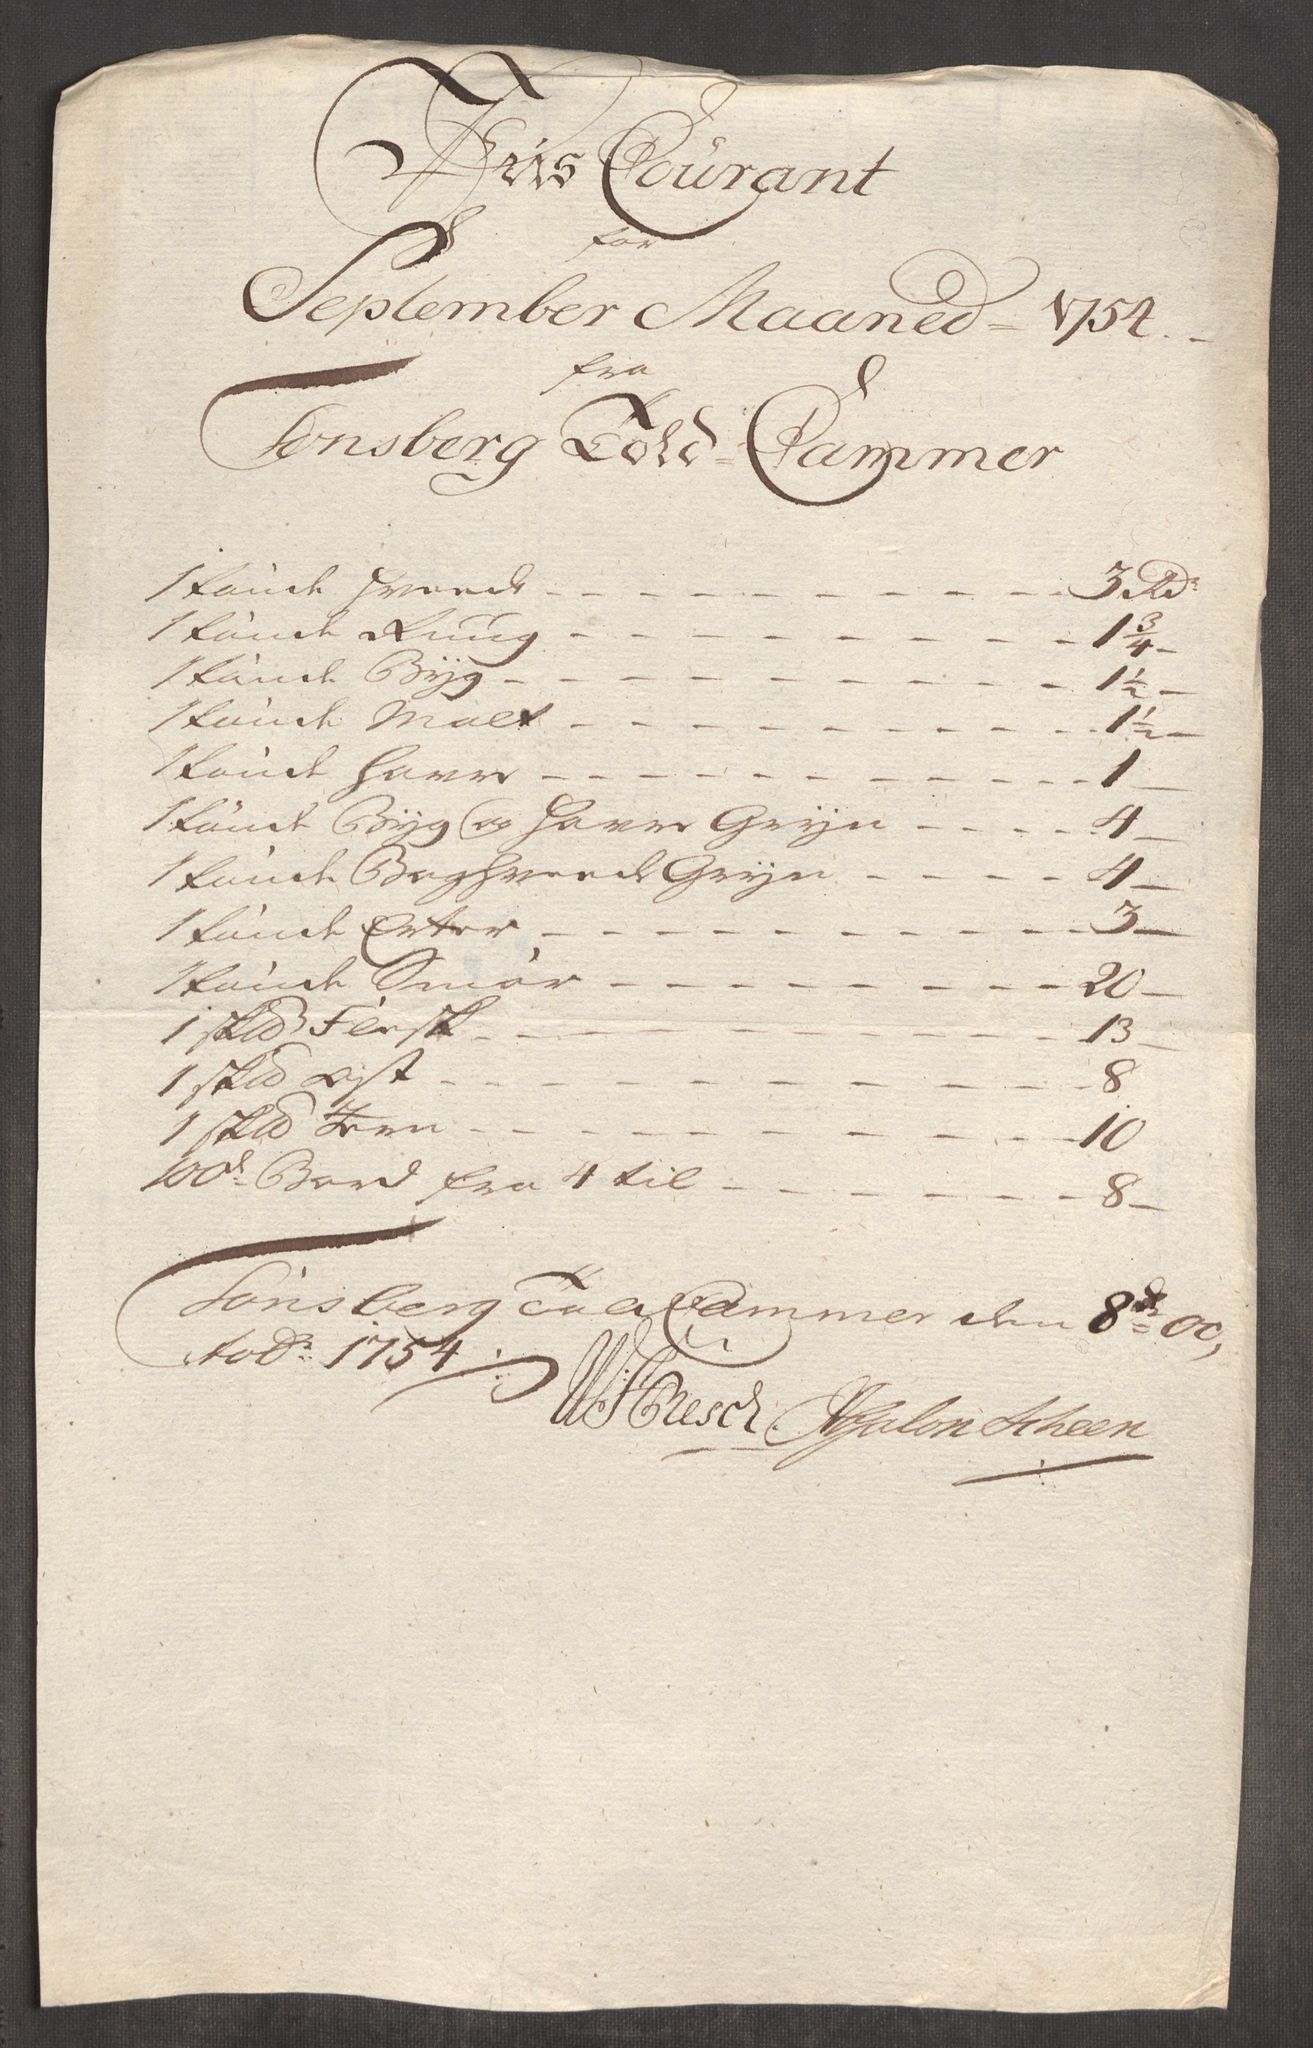 Priis Courant
for
September Maaned = 1754.
fra
Tonsberg Told-Cammer
1 tønde Hveede 3 Rdr
1 tønde Rüüg 1 3/4
1 tønde Bÿg 1 1/2
1 tønde Malt 1 1/2
1 tønde Havre 1
1 tønde Bÿg og Havre Grÿn 4
1 tønde Boghveede Grÿn 4
1 tønde Erter 3
1 tønde Smør 20
1 skld Flesk 13
1 skld Ost 8
1 skld Jern 10
100d Bord fra 4 til 8
Tønsberg Told Cammer den 8de Oc,
tobr 1754
Resch. Absalon Scheen